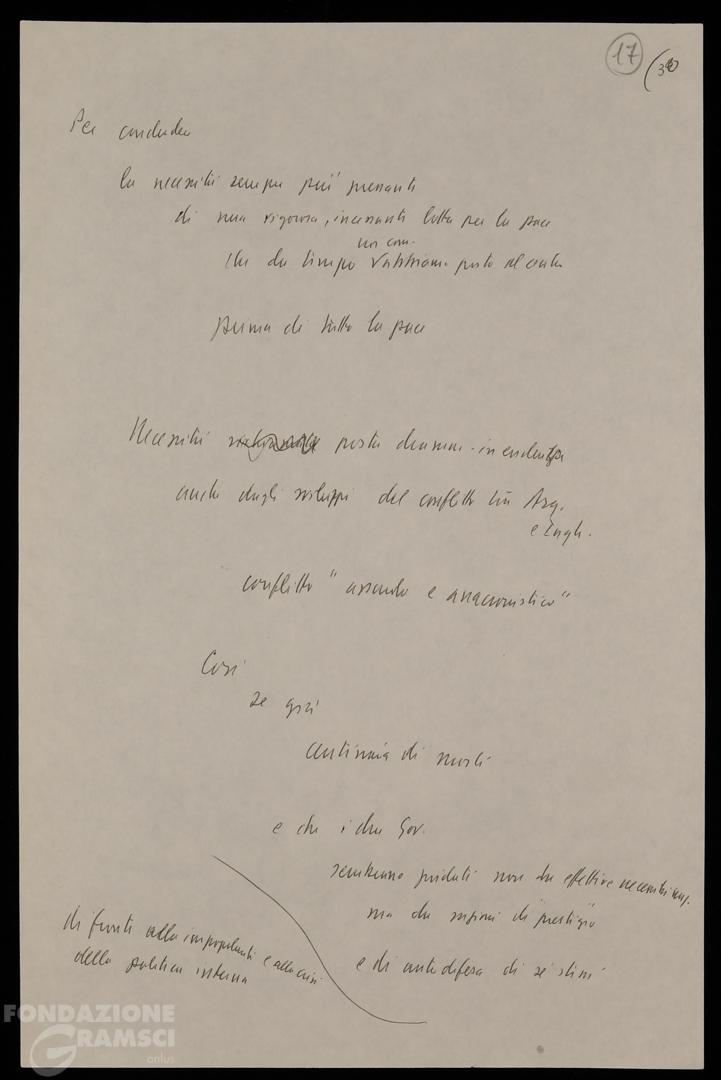 17 (30
Per concludere
la necessità sempre più pressanti
di una rigorosa, incessante lotta per la pace
noi com.
che da tempo abbiamo posto al centro
prima di tutto la pace
Necessità posta dramm. in evidenza
anche dagli sviluppi del conflitto tra Arg.
e Ingh.
conflitto "assurdo e anacronistico"
Così
se già
centinaia di morti
e che i due Gov.
sembrano guidati non da effettive necessità
ma da ragioni di "prestigio"
e di autodifesa di sé stessi
di fronte alla impopolarità e alla crisi
della politica interna
FONDAZIONE
GRAMSCI
onlus